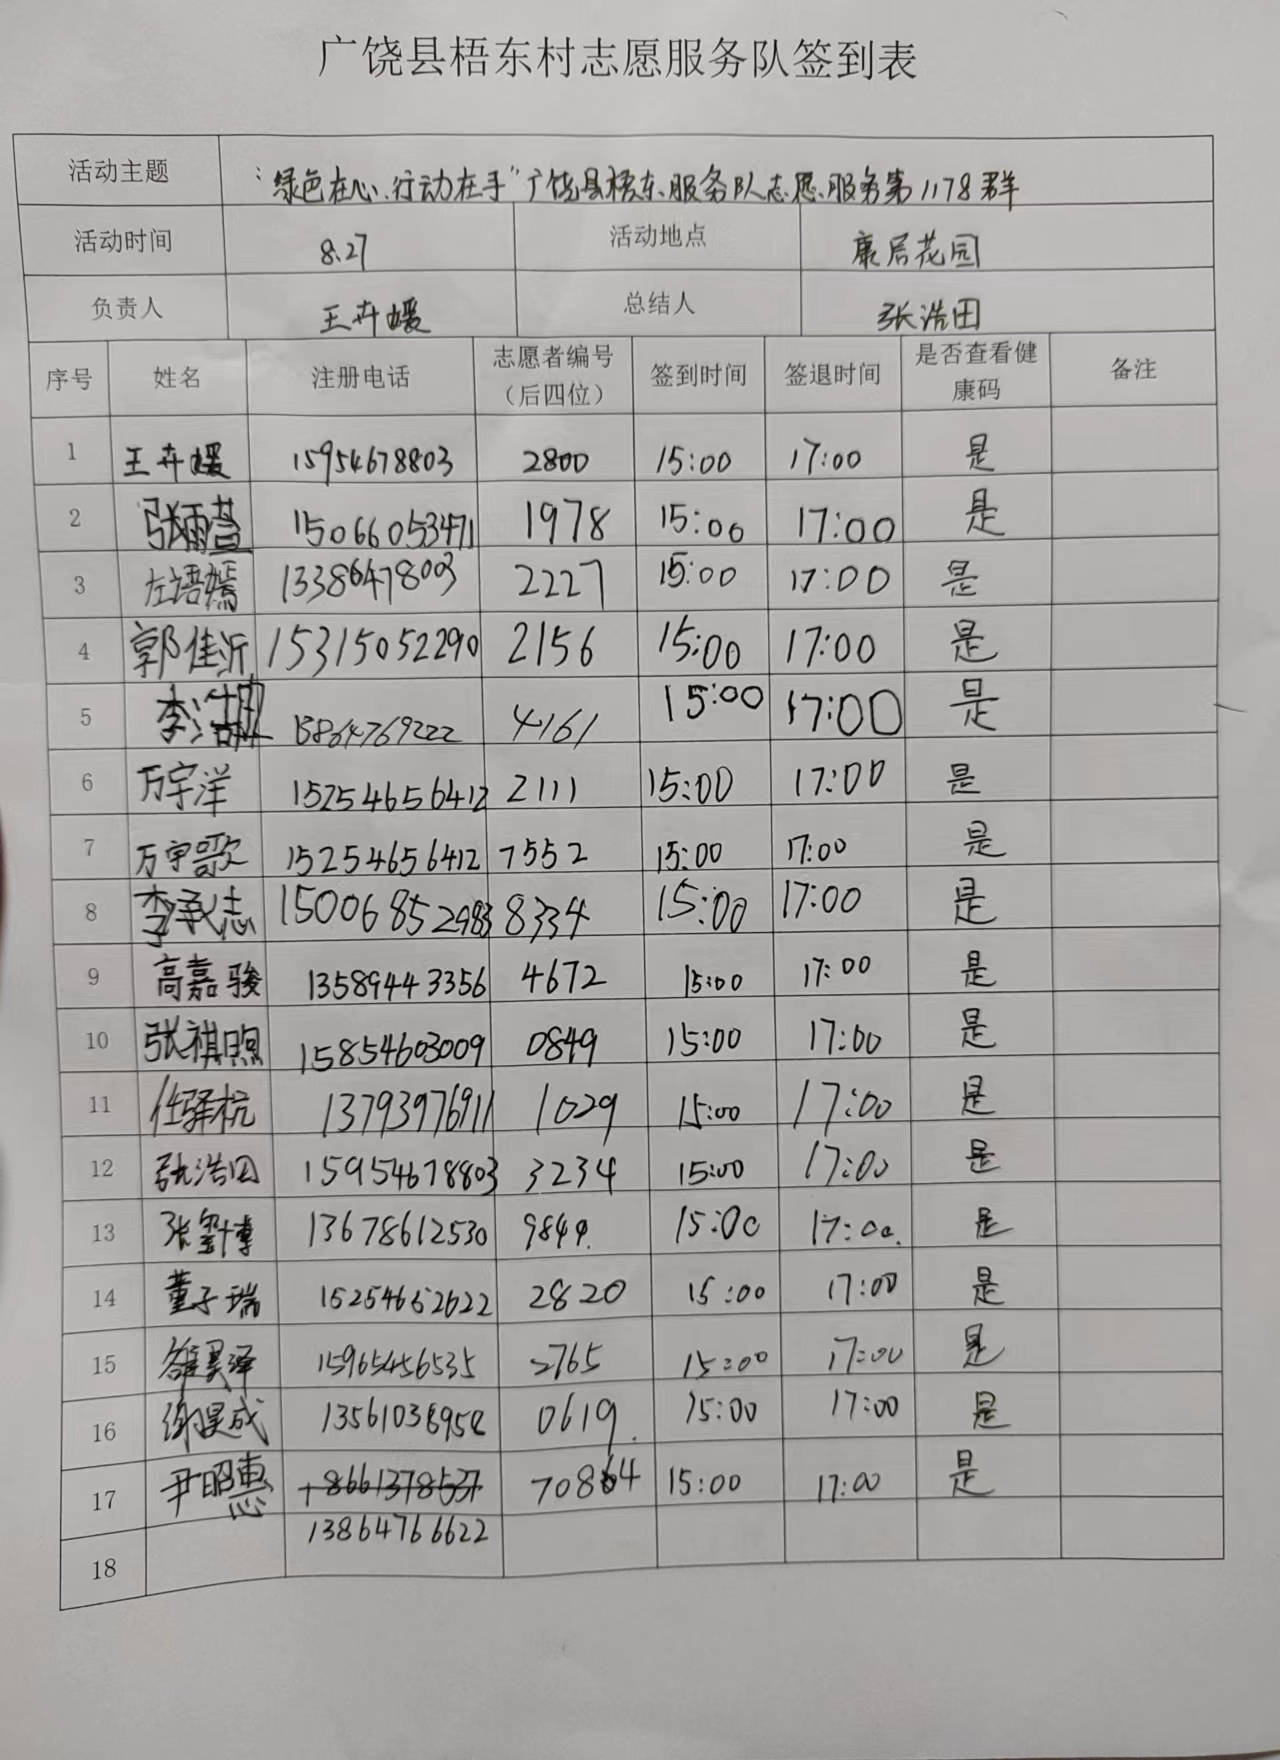 广饶县梧东村志愿服务队签到表
活动主题 “绿色在心、行动在手”广饶县梧东服务队志愿服务第1178群
活动时间 8.27 活动地点 康居花园
负责人 王卉媛 总结人 张浩田
序号 姓名 注册电话 志愿者编号（后四位） 签到时间 签退时间 是否查看健康码 备注
1 王卉媛 15954678803 2800 15:00 17:00 是
2 张雨萱 15066053471 1978 15:00 17:00 是
3 左语嫣 13386478003 2227 15:00 17:00 是
4 郭佳沂 15315052290 2156 15:00 17:00 是
5 李浩 15864769222 4161 15:00 17:00 是
6 万宇洋 15254656412 2111 15:00 17:00 是
7 万宇歌 15254656412 7552 15:00 17:00 是
8 李承志 15006852983 8334 15:00 17:00 是
9 高嘉骏 13589443356 4672 15:00 17:00 是
10 张祺煦 15854603009 0849 15:00 17:00 是
11 任驿杭 13793976911 1029 15:00 17:00 是
12 张浩田 15954678803 3234 15:00 17:00 是
13 张玺博 13678612530 9844. 15:00 17:00. 是
14 董子瑞 15254652622 2820 15:00 17:00 是
15 昊泽 15965456535 2765 15:00 17:00 是
16 谢昊成 1356103895 0619. 15:00 17:00 是
17 尹昭惠 18661378537 70864 15:00 17:00 是
13864766622
18